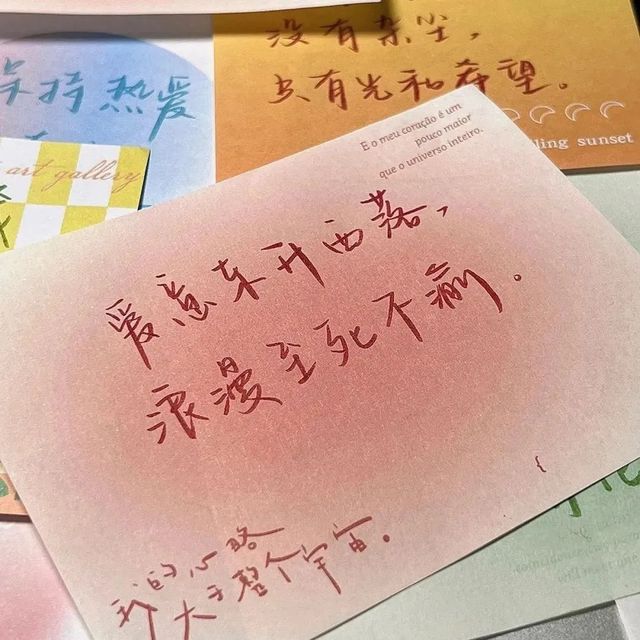 没有杂尘，
只有光和希望。
保持热爱
art gallery
ling sunset
E o meu coração é um
pouco maior
que o universo inteiro.
爱意东升西落，
浪漫至死不渝。
我的心略
大于整个宇宙。